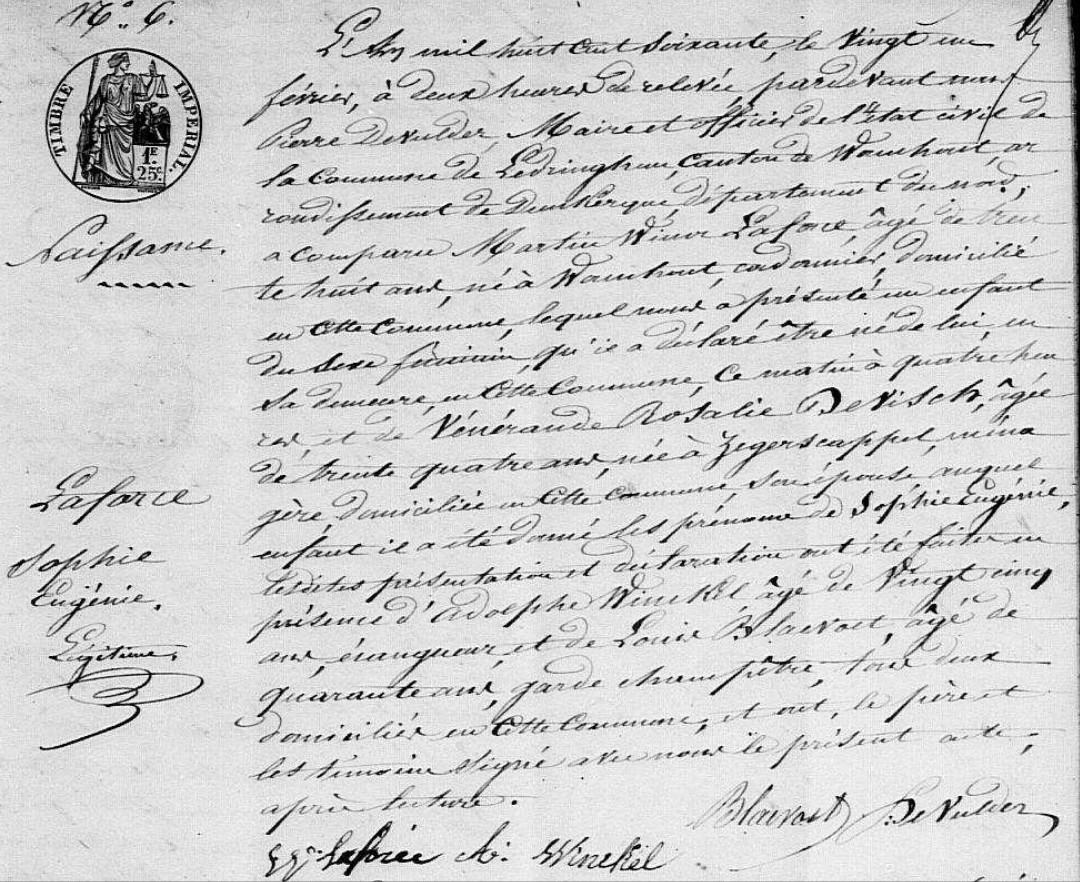 N.° 6.
TIMBRE IMPERIAL.
1F
25c.
Naissance.
Laforce
Sophie
Eugénie.
Légitime.
L'An mil huit cent soixante, le vingt un
février, à deux heures de relevée pardevant nous
Pierre Devulder, Maire et officier de l'état civil de
la Commune de Ledringhem, canton de Wormhout, ar
rondissement de Dunkerque, département du nord,
a comparu Martin Winoc Laforce, âgé de tren
te huit ans, né à Wormhout, cordonnier, domicilié
en cette Commune, lequel nous a présenté un enfant
du sexe féminin, qu'il a déclaré être né de lui, en
sa demeure, en cette Commune, ce matin à quatre heu
res, et de Vénérande Rosalie DeVisch, âgée
de trente quatre ans, née à Zegerscappel, ména
gère, domiciliée en cette commune, son épouse auquel
enfant il a été donné les prénoms de Sophie Eugénie,
lesdites présentation et déclaration ont été faites en
présence d'Adolphe Winckel âgé de vingt cinq
ans, étangueur, et de Louis Blaevoet, âgé de
quarante ans, garde champêtre, tous deux
domiciliés en cette Commune, et ont, le père et
les témoins signé avec nous le présent acte,
après lecture.
Blaevoet DeVulder
Laforce Ad. Winckel